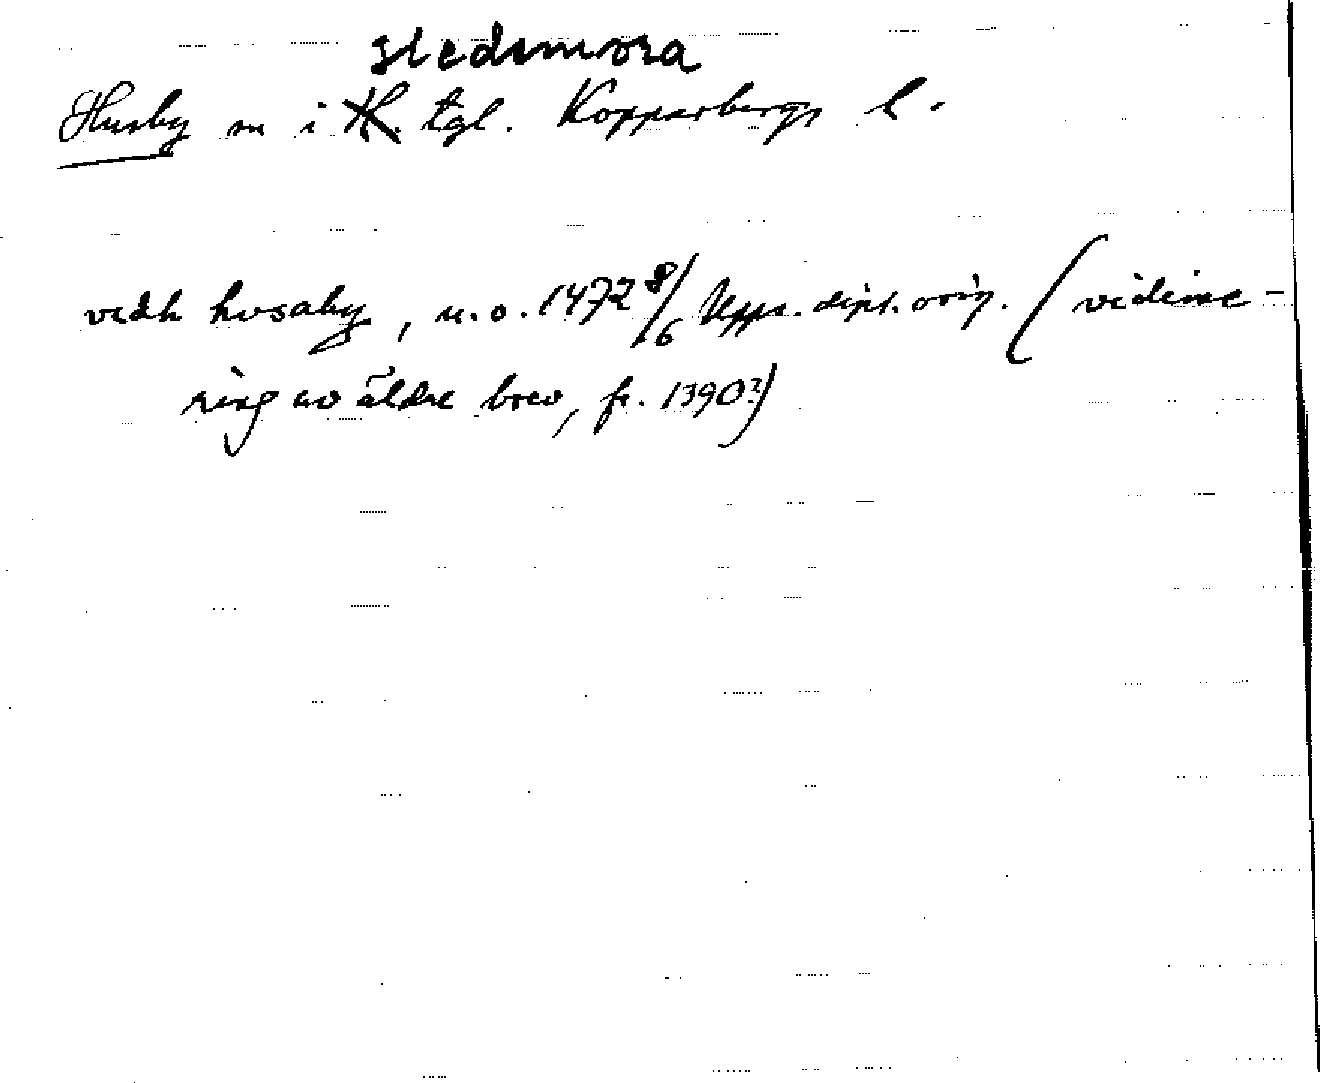 stedsmora
Husby sn i H. tgl. Kopparbergs l.
vedh husaby, u.o. 1472 8/6 Upps. dipl. orig. (vidime-
ring av äldre brev, fr. 1390?)